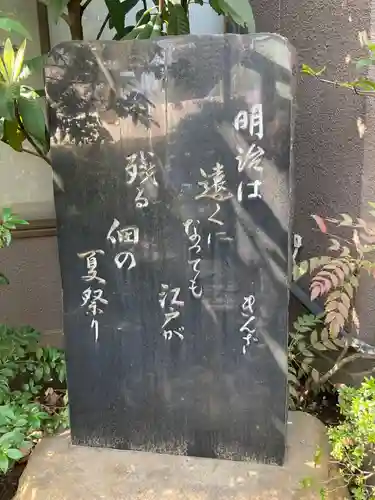 明治は
遠くに
なっても
江戸が
残る
佃の
夏祭り
きんだ